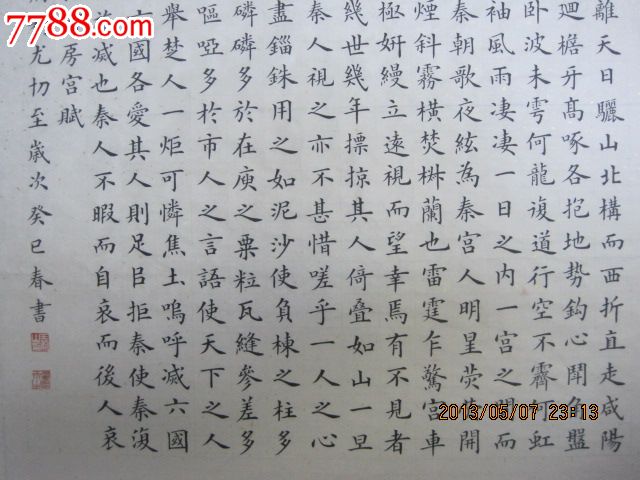 7788.com
離天日驪山北構而西折直走咸陽
廻檐牙高啄各抱地勢鈎心鬪角盤
卧波未雩何龍復道行空不霽何虹
袖風雨凄凄一日之内一宮之間而
秦朝歌夜絃為秦宮人明星熒熒開
煙斜霧橫焚椒蘭也雷霆乍驚宮車
極妍縵立遠視而望幸焉有不見者
幾世幾年摽掠其人倚疊如山一旦
秦人視之亦不甚惜嗟乎一人之心
盡錙銖用之如泥沙使負棟之柱多
磷磷多於在庾之粟粒瓦縫參差多
嘔啞多於市人之言語使天下之人
舉楚人一炬可憐焦土嗚呼滅六國
國各愛其人則足㠯拒秦使秦復
滅也秦人不暇而自哀而後人哀
房宮賦
尤切至歲次癸巳春書
2013/05/07 23:13